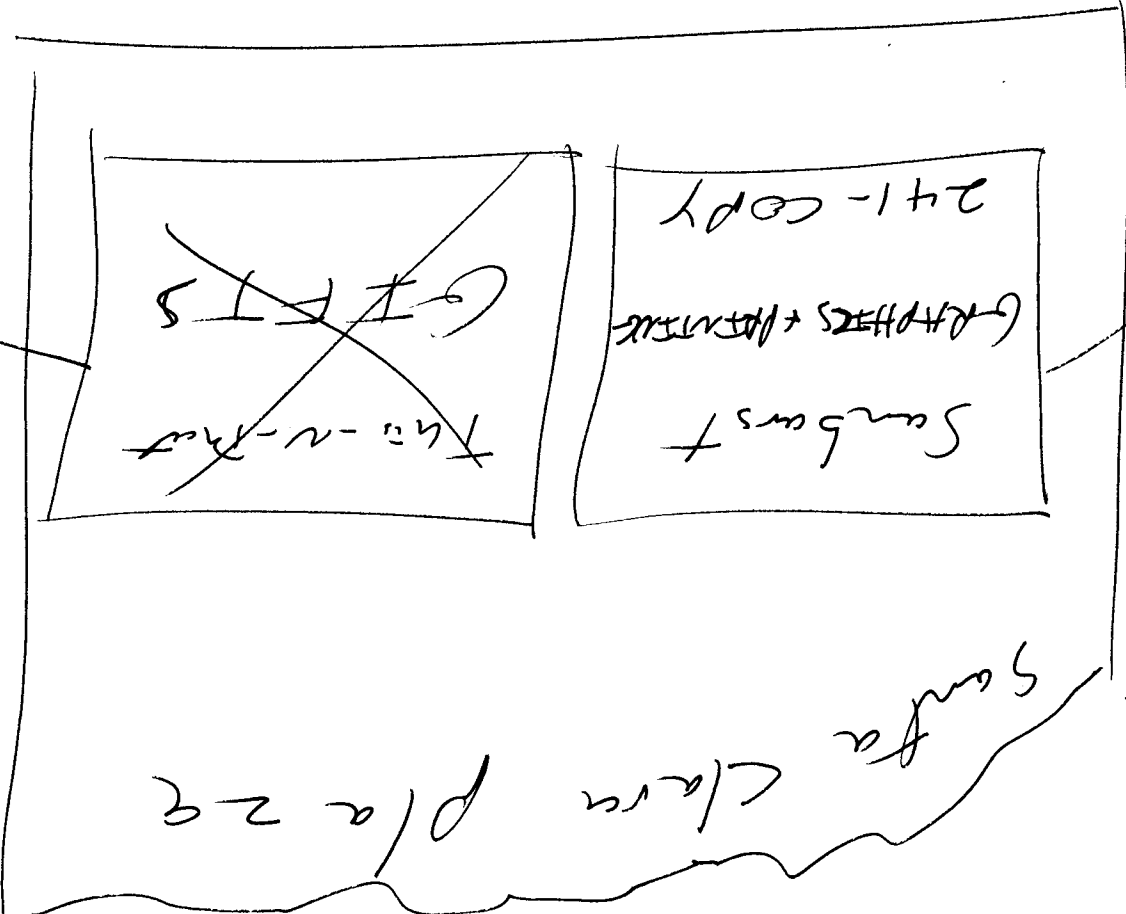 Santa Clara plaza
Sunburst
GRAPHICS + PRINTING
241-COPY
GIFTS